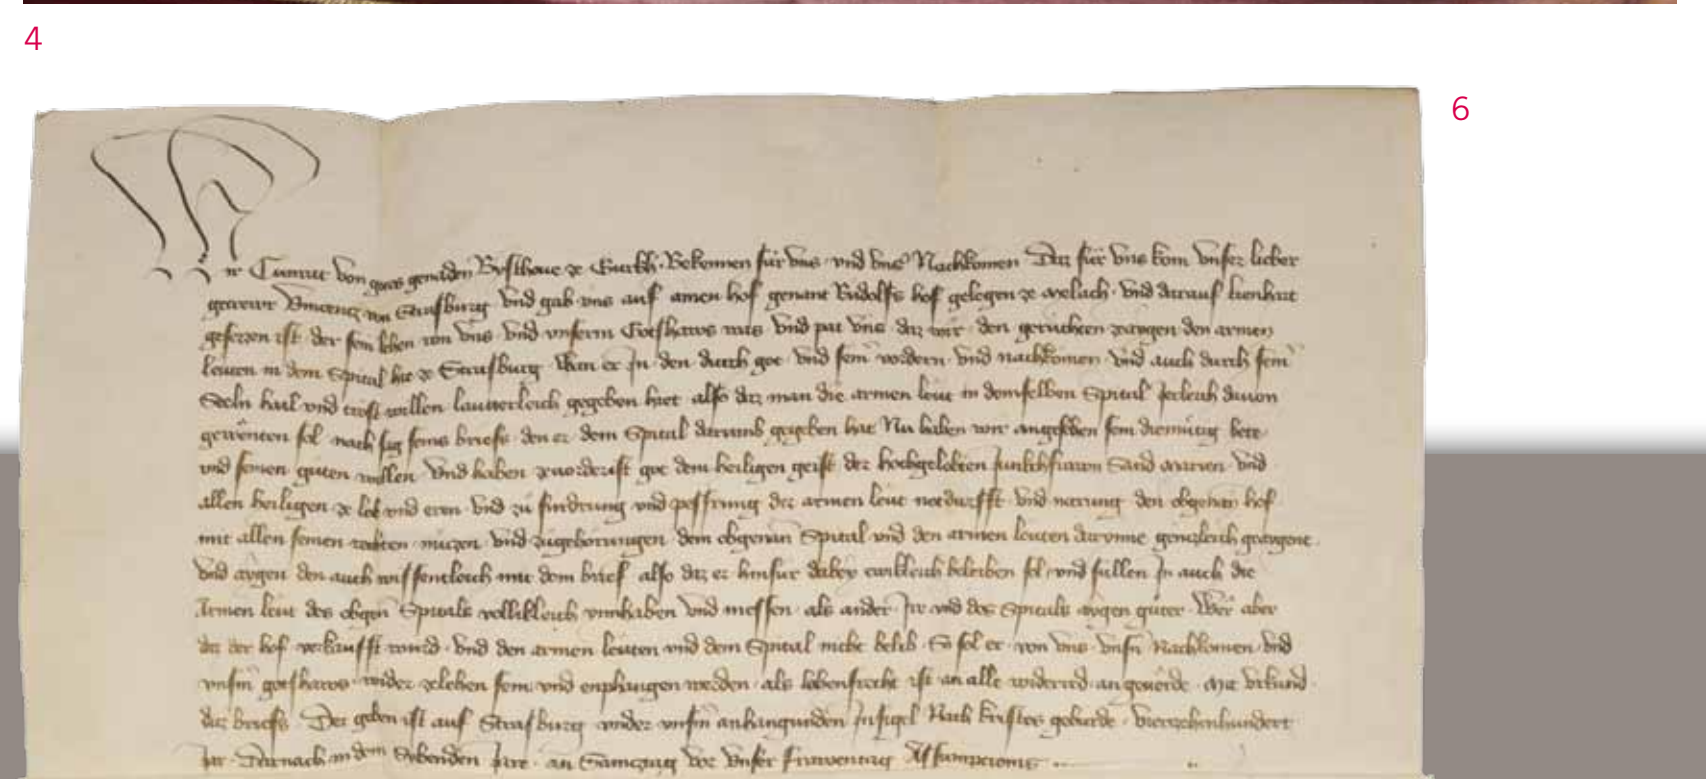 4
6
Wir Cunrat von gotes genaden Bysschoue ze Gurkh. Bekennen für vns vnd vns Nachkomen Daz für vns kom vnser lieber
getrewr Vincentz von Strasburg vnd gab vns auf ainen hof genant Rudolfs hof gelegen ze melach vnd darauf lienhart
gesezzen ist der sein lehen von vns vnd vnserm Gotshaws was vnd pat vns daz wir den geruchten zaygen den armen
leuten in dem Spital hie ze Strasburg Wan er In den durch got vnd sein vordern vnd nachkomen vnd auch durch sein
Seeln hail vnd trost willen lautterleich gegeben hiet also daz man die armen leut in demselben Spital Jerleich dauon
solt nach sag seins briefs den er dem Spital darumb gegeben hat Nu haben wir angesehen sein diemutig bete
vnd seinen guten willen Vnd haben zuuorderist got dem heiligen geist der hochgelobten Junkchfrawn Sand Marien vnd
allen heiligen ze lob vnd eren vnd zu fürdrung vnd pessrung der armen leut notdurfft vnd narung den obgenan hof
mit allen seinen rechten nuczen vnd zugehorungen dem obgenan Spital vnd den armen leuten darynne genczleich geaygent
Vnd aygen den auch wissentleich mit dem brief also daz er hinfur dabey ewikleich beleiben sol vnd sullen In auch die
Armen leut des obgen Spitals vollikleich innhaben vnd niessen als ander Ir vnd des Spitals aygen guter Wer aber
daz der hof verkaufft wurd vnd den armen leuten vnd dem Spital nicht belib So sol er von vns vnsn Nachkomen vnd
vnsm gotshaws wider zelehen sein vnd enphangen werden als lehensrecht ist an alle widerred an geuerde Mit vrkund
diz briefs Der geben ist auf Strasburg vnder vnsm anhangunden Insigel Nach kristes geburde vierzehenhundert
Jar Darnach in dem Sybenden Jare an Samcztag vor vnser frawentag Assumpcionis